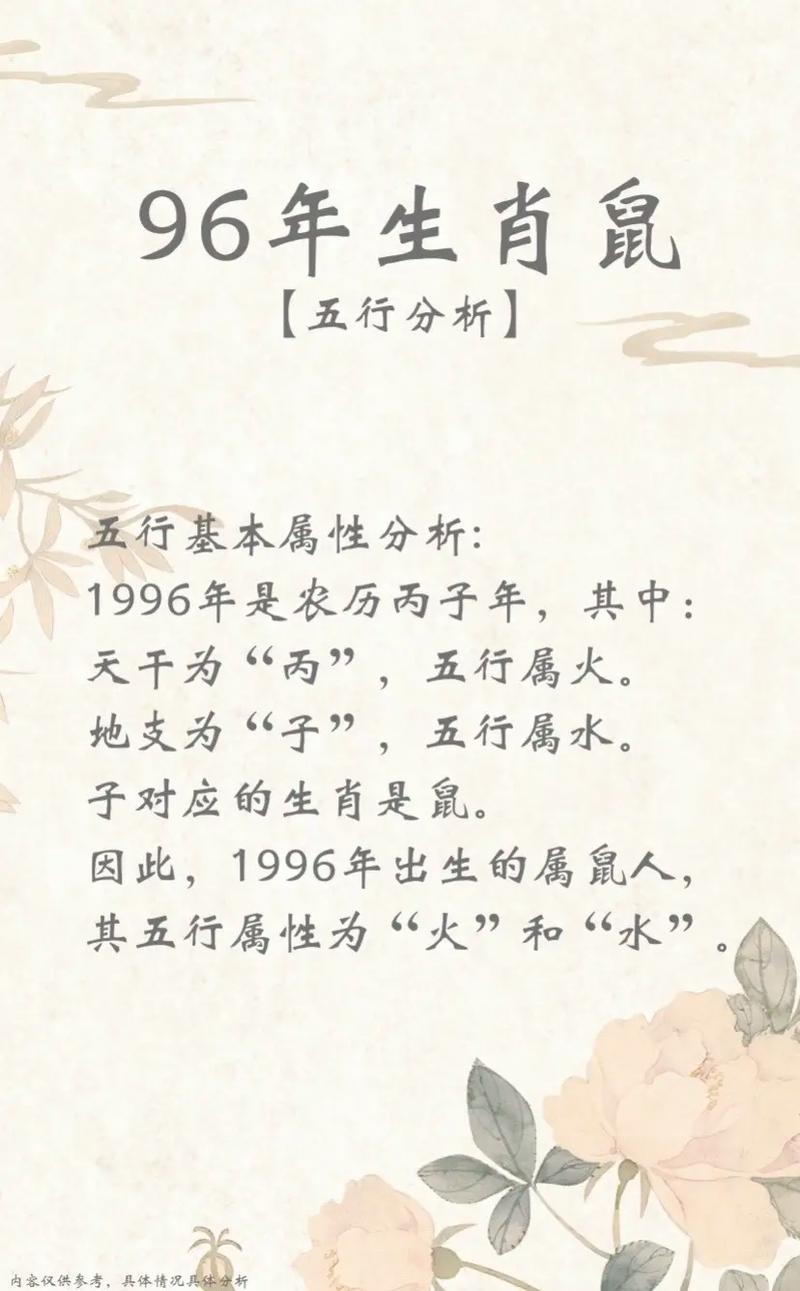 96年生肖鼠
【五行分析】
五行基本属性分析：
1996年是农历丙子年，其中：
天干为“丙”，五行属火。
地支为“子”，五行属水。
子对应的生肖是鼠。
因此，1996年出生的属鼠人，
其五行属性为“火”和“水”。
内容仅供参考，具体情况具体分析